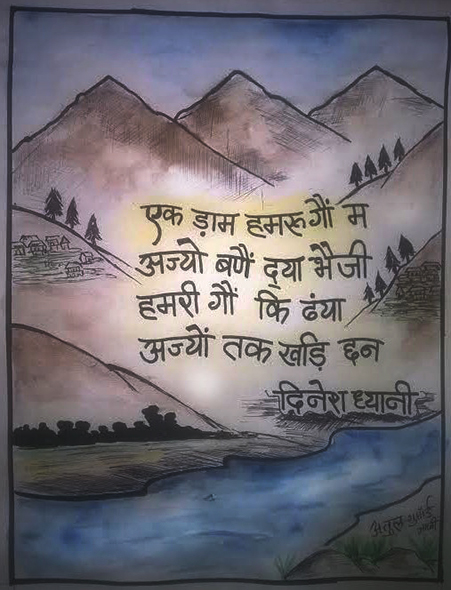 एक ड़ाम हमरू गौं म
अज्यो बणैं द्या भैजी
हमरी गौं कि ढंया
अज्यों तक खड़ि छन
दिनेश ध्यानी
अतुल